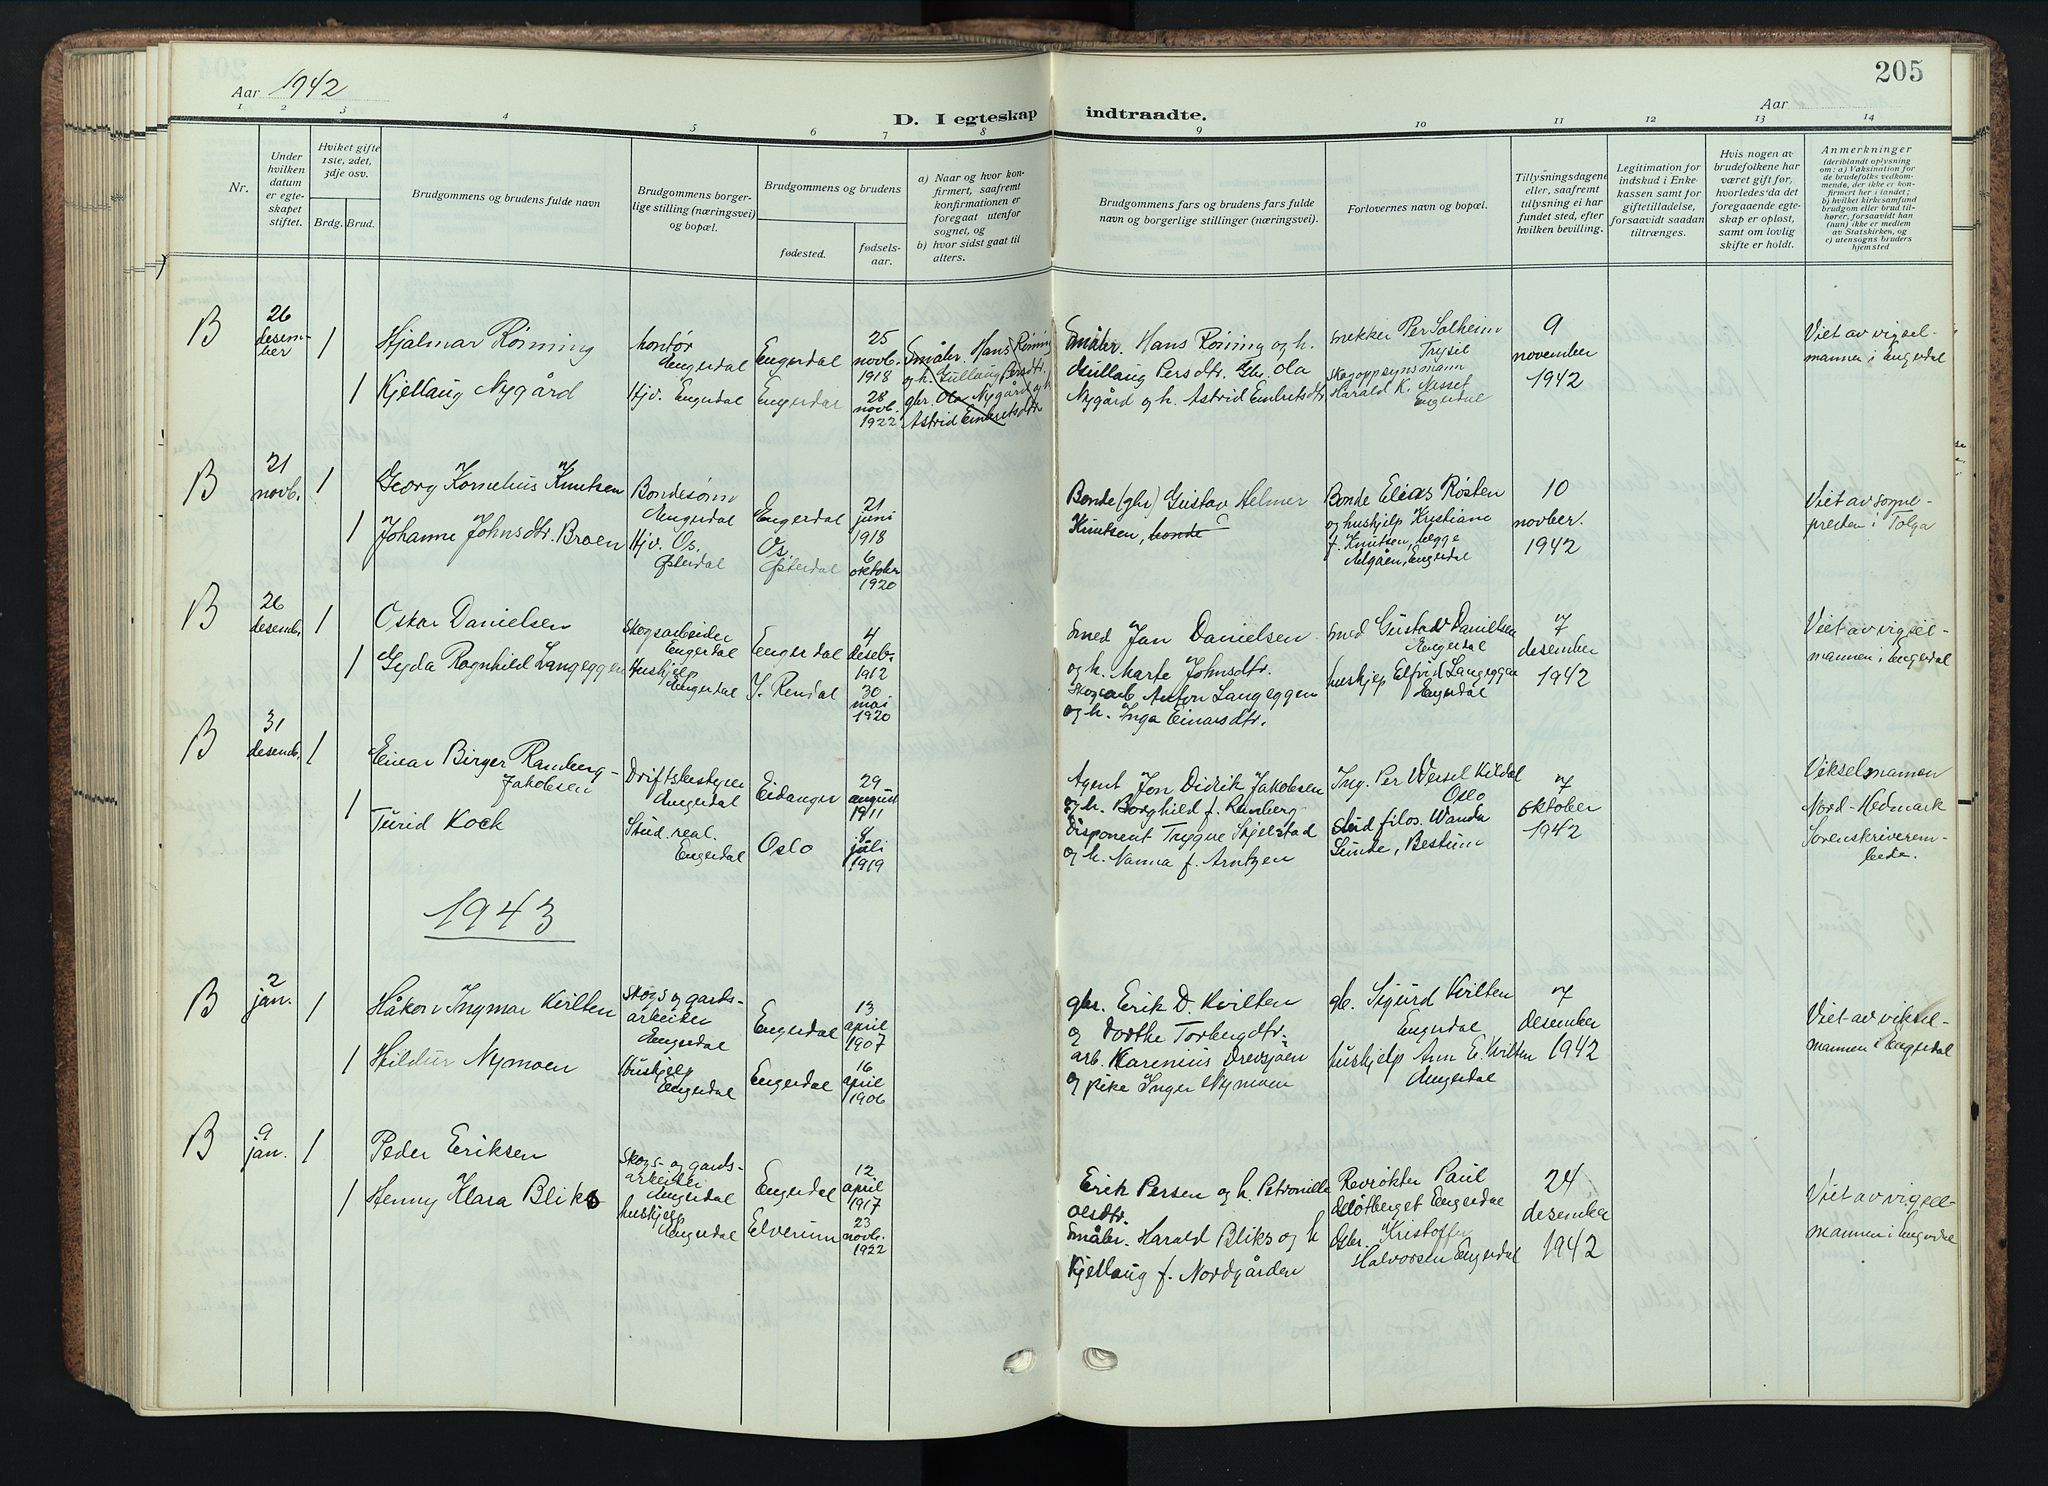 205
Aar 1942
Aar
D. I egteskap indtraadte.
1 2 3 4 5 6 7 8 9 10 11 12 13 14
Nr.
Under hvilken datum er egteskapet stiftet.
Hviket gifte 1ste, 2det, 3dje osv.
Brdg. Brud.
Brudgommens og brudens fulde navn
Brudgommens borgerlige stilling (næringsvei) og bopæl.
Brudgommens og brudens
fødested.
fødselsaar.
a) Naar og hvor konfirmert, saafremt konfirmationen er foregaat utenfor sognet, og
b) hvor sidst gaat til alters.
Brudgommens fars og brudens fars fulde navn og borgerlige stillinger (næringsvei).
Forlovernes navn og bopæl.
Tillysningsdagene eller, saafremt tillysning ei har fundet sted, efter hvilken bevilling.
Legitimation for indskud i Enkekassen samt for giftetilladelse, forsaavidt saadan tiltrænges.
Hvis nogen av brudefolkene har været gift før, hvorledes da det foregaaende egteskap er opløst, samt om lovlig skifte er holdt.
Anmerkninger
(deriblandt oplysning om: a) Vaksination for de brudefolks vedkommende, der ikke er konfirmert her i landet; b) hvilket kirkesamfund brudgom eller brud tilhører, forsaavidt han (hun) ikke er medlem av Statskirken, og c) utensogns bruders hjemsted
B
26 desember
1
Hjalmar Rönning
Engerdal
Engerdal
25 novb. 1918
Småbr. Hans Rönning
og h. Gullaug Persdtr.
gbr. Ola Nygård og h.
Astrid Embretsdtr.
Småbr. Hans Rönning og h.
Gullaug Persdtr. Gbr. Ola
Nygård og h. Astrid Embretsdtr.
snekker Per Solheim
Trysil
skogoppsynsmann
Harald K. Nasset
Engerdal
9
november
1942
Viet av vigsel-
mannen i Engerdal
1
Kjellaug Nygård
Hjv. Engerdal
Engerdal
28 novb. 1922
B
21 novb.
1
Georg Kornelius Knutsen
Bondesønn
Engerdal
Engerdal
21 juni 1918
Bonde (gbr) Gustav Helmer
Knutsen, bonde
Bonde Elias Røsten
og hushjelp Kristiane
f. Knutsen, begge
Elgåen, Engerdal
10
novber.
1942
Viet av sogne-
presten i Tolga
1
Johanne Johnsdtr. Broen
Hjv. Os.
Østerdal
Os.
Østerdal
6 oktober 1920
B
26 desemb.
1
Oskar Danielsen
Skogsarbeider
Engerdal
Engerdal
4 deseb. 1912
Smed Jan Danielsen
og h. Marte Johnsdtr.
Skogsarb. Anton Langeggen
og h. Inga Einarsdtr.
Smed Gustav Danielsen
Engerdal
hushjelp Elfrid Langeggen
Engerdal
7
desember
1942
Viet av vigsel-
mannen i Engerdal
1
Gyda Ragnhild Langeggen
Hushjelp
Engerdal
Y. Rendal
30 mai 1920
B
31 desemb.
1
Einar Birger Ramberg-
Jakobsen
Driftsbestyrer
Engerdal
Eidanger
29 august 1911
Agent Jon Didrik Jakobsen
og h. Borghild f. Ramberg
Disponent Trygve Skjelstad
og h. Nanna f. Arntzen
Ing. Per Wessel Kildal
Oslo
stud filos. Wanda
Lunde, Bestum
7
oktober
1942
Vikselsmannen
Nord-Hedmark
Sorenskriverem-
bede.
1
Turid Koch
Stud. real.
Engerdal
Oslo
4 juli 1919
1943
B
2 jan.
1
Håkon Ingmar Kvilten
Skogs og gards-
arbeider
Engerdal
Engerdal
13 april 1907
gbr. Erik D. Kvilten
og Dorthe Torbergdtr.
arb. Karenius Drevsjøen
og pike Inger Nymoen
gb. Sigurd Kvilten
Engerdal
hushjelp Ann E. Kvilten
Engerdal
7
desember
1942
Viet av viksel-
mannen i Engerdal
1
Hildur Nymoen
Hushjelp
Engerdal
Engerdal
16 april 1906
B
9 jan.
1
Peder Eriksen
Skogs- og gards-
arbeider
Engerdal
Engerdal
12 april 1917
Erik Persen og h. Petronille
Olsdtr.
Småbr. Harald Bliks og h
Kjellaug f. Nordgården
Revrøkter Paul
Galøtberget Engerdal
Gbr. Kristoffer
Halvorsen Engerdal
24
desember
1942
Viet av vigsel-
mannen i Engerdal
1
Henny Klara Bliks
hushjelp
Engerdal
Elverum
23 novb. 1922